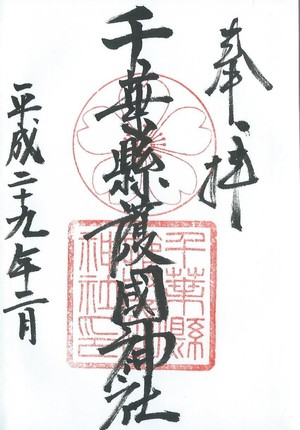 奉拝
千葉縣護國神社
平成二十九年二月
千葉縣護國神社印